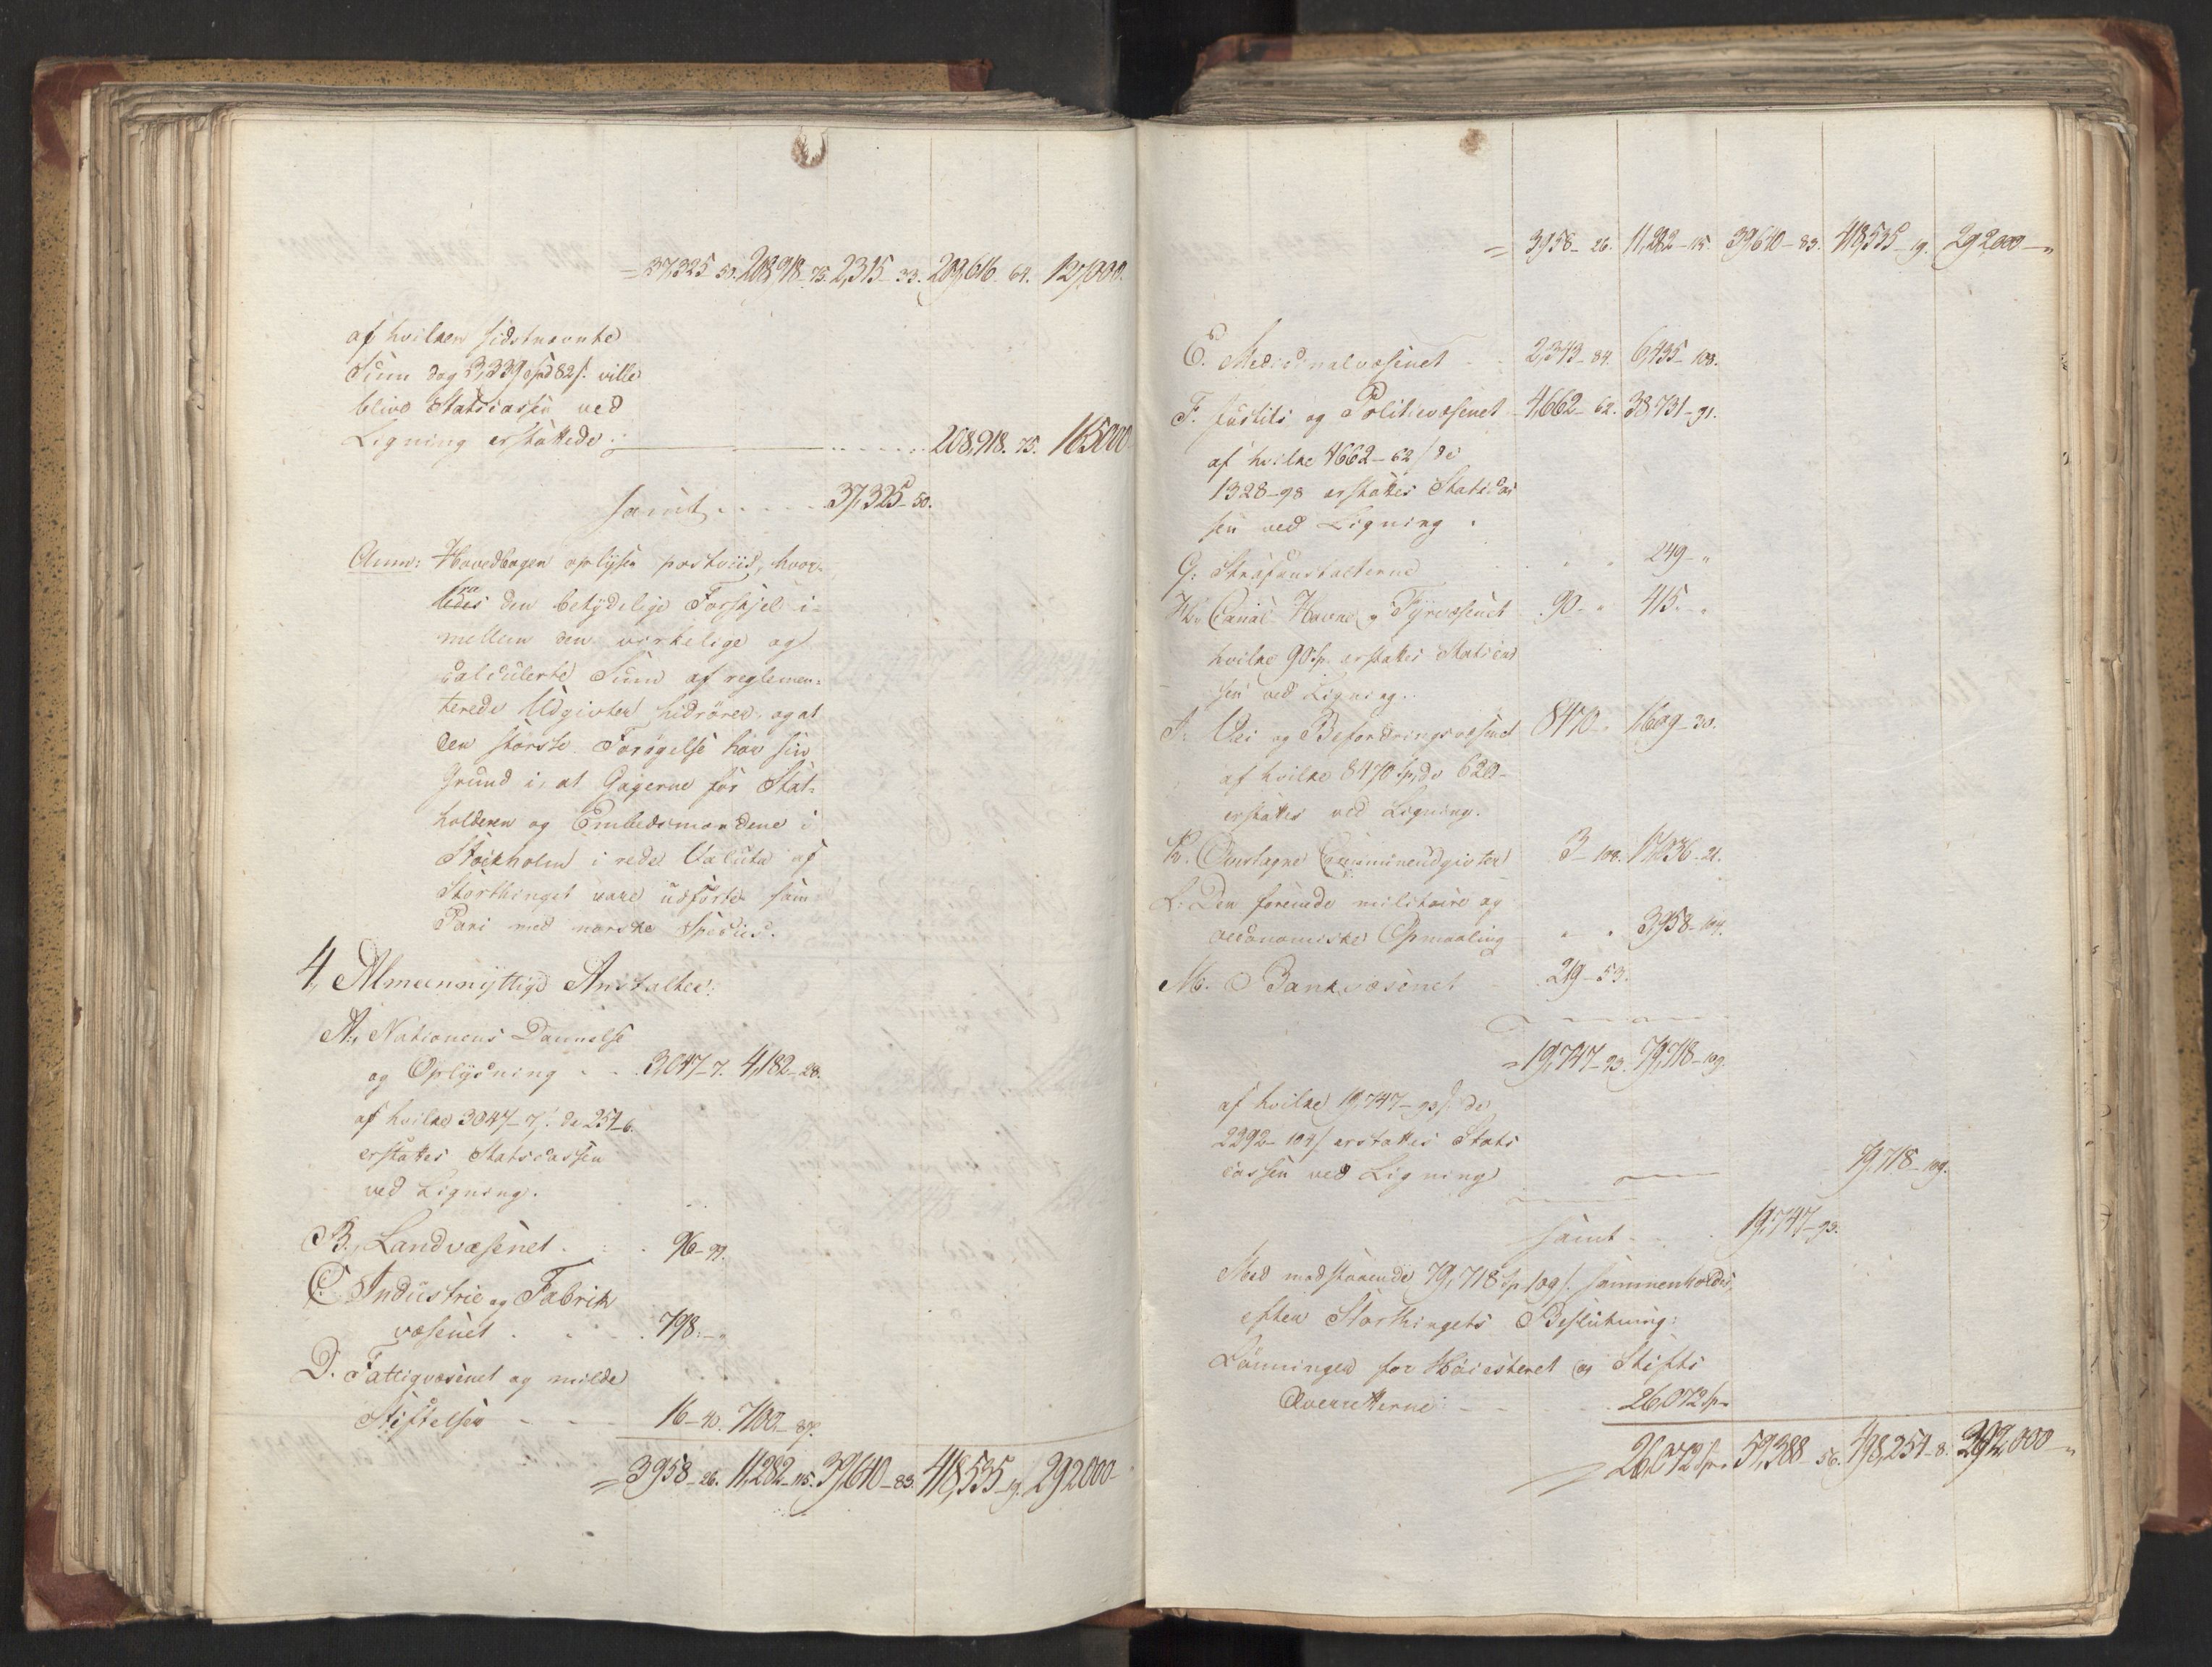 = 37,325 50. 208,918 - 75. 2,315 - 33. 209,616 - 64. 127,000.
af hvilken sidstnævnte
Sum dog 3,339 Spd 82 s. ville
blive Statscassen ved
Ligning erstattede: 208,918. 75. 165000
samt . . . . . 37,325 - 50.
Anm: Hovedbogen oplyser postviis, hvor-
fra den betydelige Forskjel i-
mellem den virkelige og
calculerte Sum af reglemen-
terede Udgivter hidrører, og at
den største Forøgelse har sin
Grund i, at Gagerne for Stat-
holderen og Embedsmændene i
Stockholm i rede Valuta af
Storthinget vare udførte som
Pari med norske Species.
4, Almeennyttige Anstalter:
A., Nationens Dannelse
og Oplysning - - . 3,047 - 7. 4,182 - 28.
af hvilke 3047 - 7 s. de 254 - 6.
erstattes Statscassen
ved Ligning.
B., Landvæsenet . . . 96 - 99.
C. Industrie og Fabrik
væsenet . . . 798. - "
D. Fattigvæsenet og milde
Stiftelser - - - 16 - 40. 7100 - 87.
= 3958 - 26. 11,282 - 115. 39,640 - 83. 418,535 - 19. 292000 -
= 3958 - 26. 11,282 - 115. 39640 - 83. 418,535 - 19. 292000 - "
E. Medicinalvæsenet - - 2,343 - 84. 6435 - 103.
F. Justits og Politievæsenet 4,662 - 62. 38,731 - 91.
af hvilke 4662 - 62 s. de
1328 - 98 erstattes Statscas
sen ved Ligning.
G: Strafanstalterne . " " 249 - "
H., Canal Havne og Fyrvæsenet . 90 - " 415. "
hvilke 90 Sp. erstattes Statscas
sen ved Ligning.
I: Vei og Befordringsvæsenet 8470 - " 1609 - 30.
af hvilke 8470 Sp. de 620 -
erstattes ved Ligning.
K. Omslagne Communeudgivter 3 - 108. 17,036 - 21.
L: Den forenede militaire og
oeconomiske Opmaaling " " 3,958 - 104.
M: Bankvæsenet - . 219 - 53.
= 19,747 - 93. 79,718 - 109.
af hvilke 19,747 - 93 s. de
2292 - 104 s. erstattes Stats
cassen ved Ligning 79,718 - 109.
samt - . . . 19,747 - 93.
Med modstaaende 79,718 Sp. 109 s. sammenholdes,
efter Storthingets Beslutning:
Lønninger for Høiesteret og Stifts
Overretterne: - - - . 26,072 Sp.
26,072 Sp. 59,388 - 56. 498,254 - 8. 292,000 - "